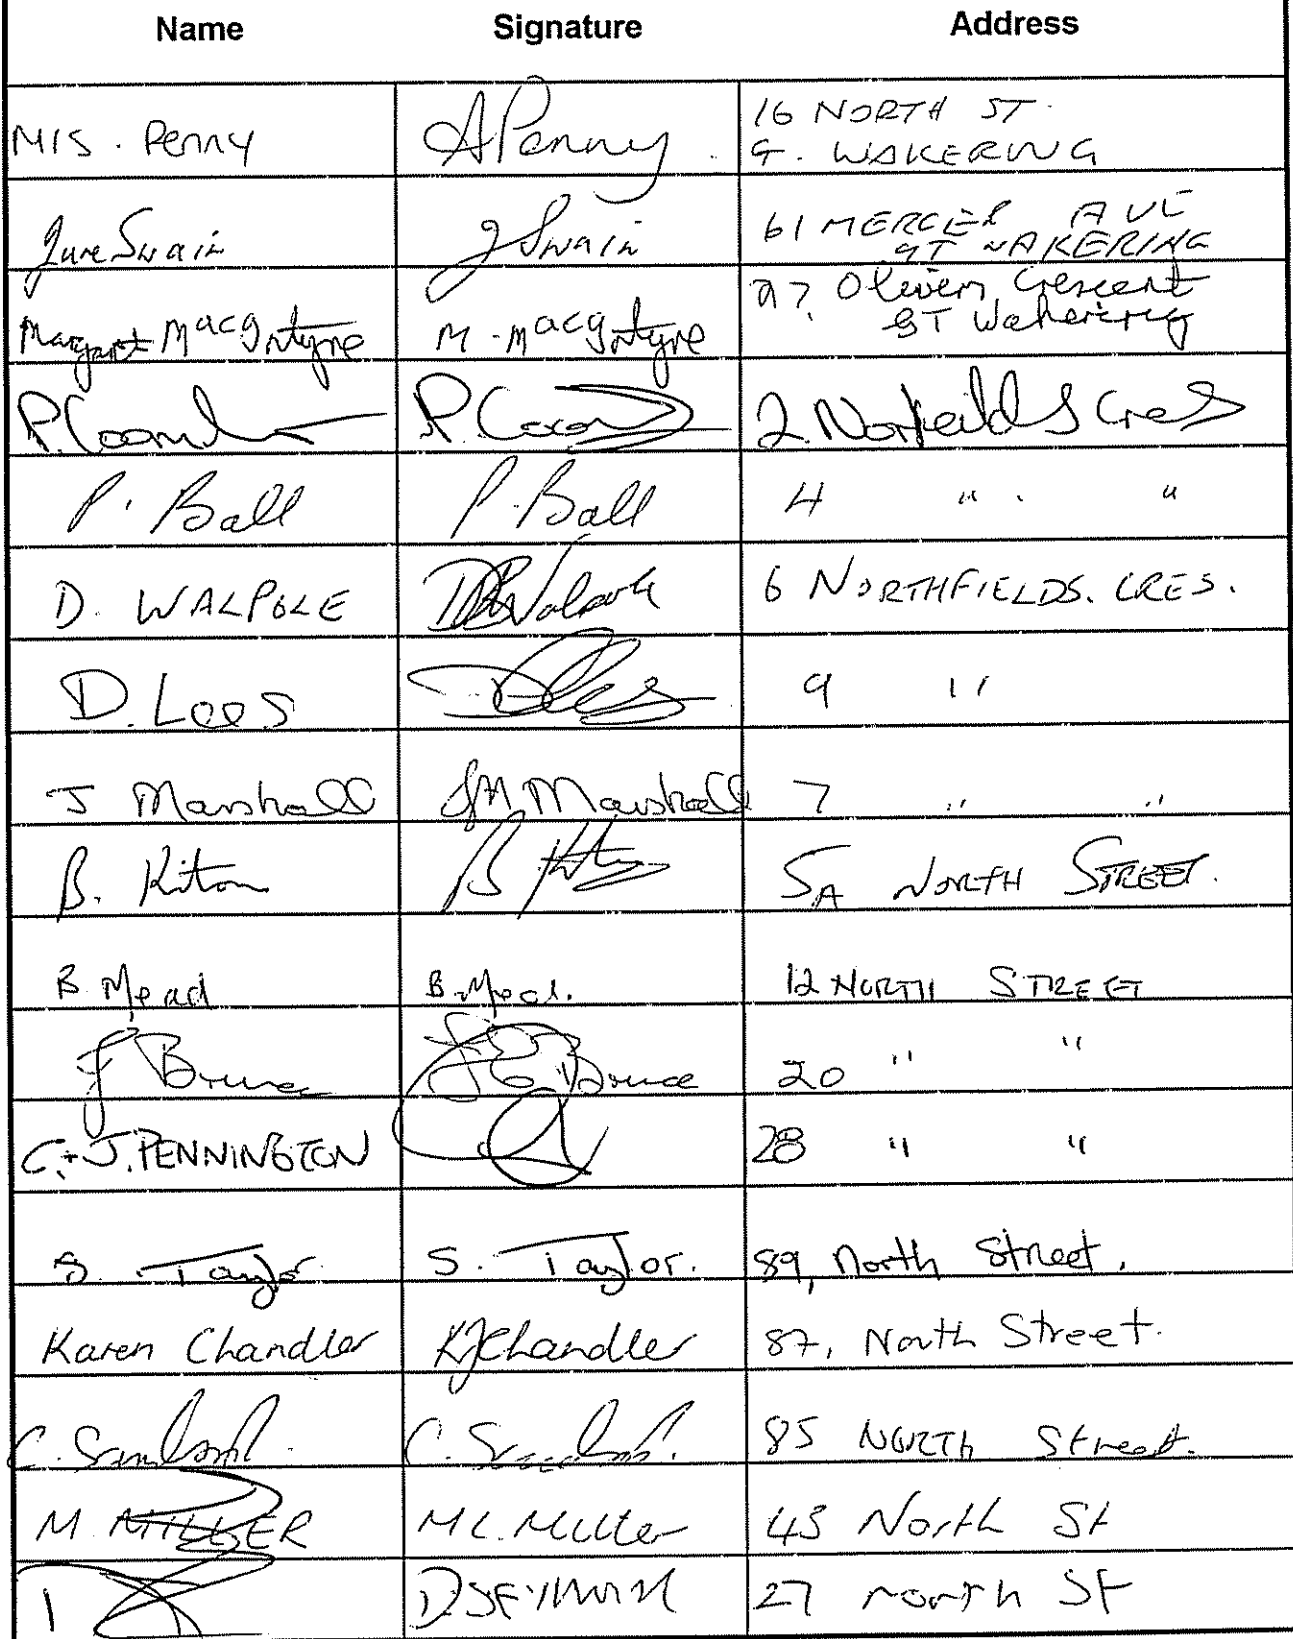 Name Signature Address
Mrs. Penny APenny. 16 NORTH ST.
G. WAKERING
June Swain J Swain 61 MERCER AVE
GT WAKERING
Margaret MacIntyre M. MacIntyre 27. Crescent
GT Wakering
P. P. 2. Norfeilds Cres
P. Ball P. Ball 4 " "
D. WALPOLE Walpole 6 NORTHFIELDS. CRES.
D. Lees DLees 9 "
J Marshall JM Marshall 7 " "
B. Kiton B 5A NORTH STREET.
B Mead B. Mead. 12 NORTH STREET
J Bruce J E Bruce 20 " "
C. + J. PENNINGTON 28 " "
S. Taylor. S. Taylor. 89, North Street.
Karen Chandler KJChandler 87, North Street.
C. C. 85 NORTH Street.
M. MILLER M L. Miller 43 North St
D. SEYMOUR 27 North St